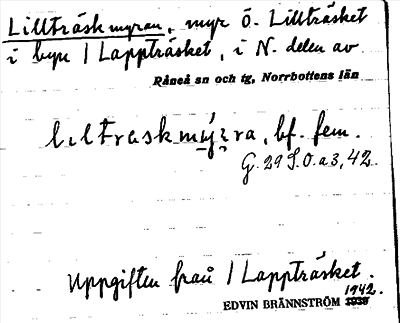 Lillträskmyran, myr ö. Lillträsket
i byn / Lappträsket, i N. delen av
Råneå sn och tg, Norrbottens län
lıltraskmỳ̨rra, bf. fem.
G. 29 S.O. a 3, 42.
Uppgiften från / Lappträsket.
EDVIN BRÄNNSTRÖM 1942.